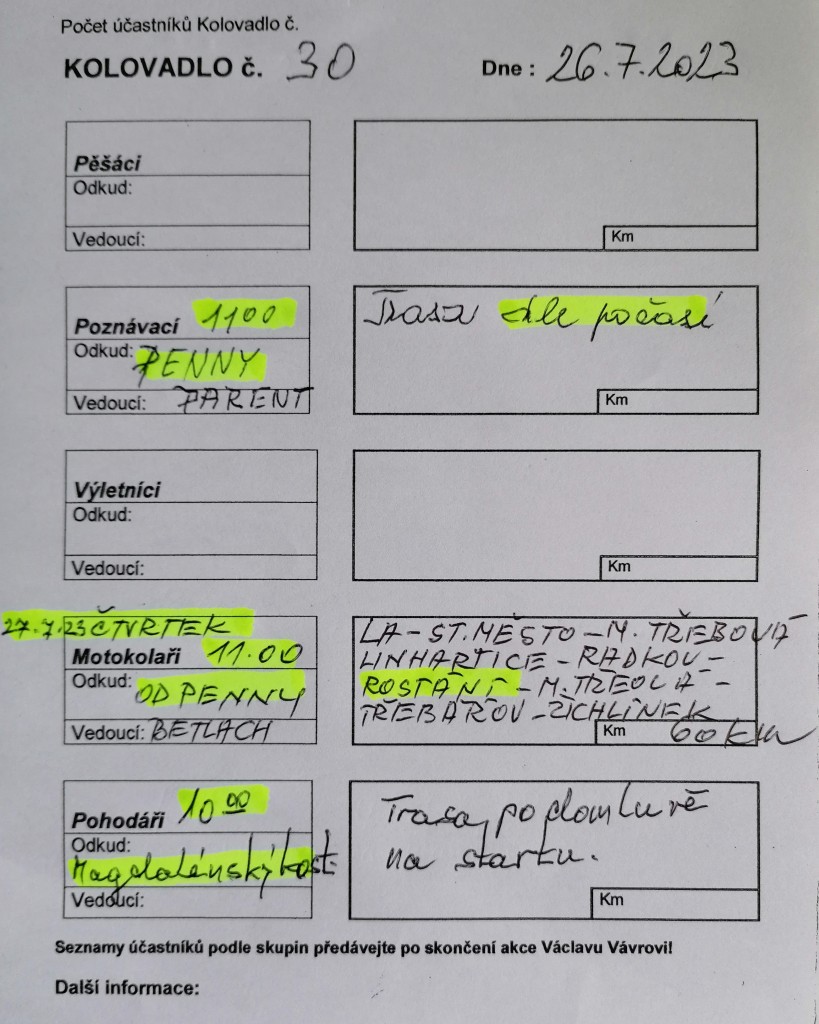 Počet účastníků Kolovadlo č.
KOLOVADLO č. 30 Dne : 26.7.2023
Pěšáci
Odkud:
Vedoucí:
Km
Poznávací 11 00
Odkud: PENNY
Vedoucí: PARENT
Trasa dle počasí
Km
Výletníci
Odkud:
Vedoucí:
Km
27.7.23 ČTVRTEK
Motokolaři 11.00
Odkud: OD PENNY
Vedoucí: BETLACH
LA – ST. MĚSTO – M. TŘEBOVÁ
LINHARTICE – RADKOV –
ROSTÁNÍ – M. TŘEOVÁ –
TŘEBAŘOV – ŽICHLÍNEK
Km 60 km
Pohodáři 10 00
Odkud:
Magdalénský kost
Vedoucí:
Trasa po domluvě
na startu.
Km
Seznamy účastníků podle skupin předávejte po skončení akce Václavu Vávrovi!
Další informace: